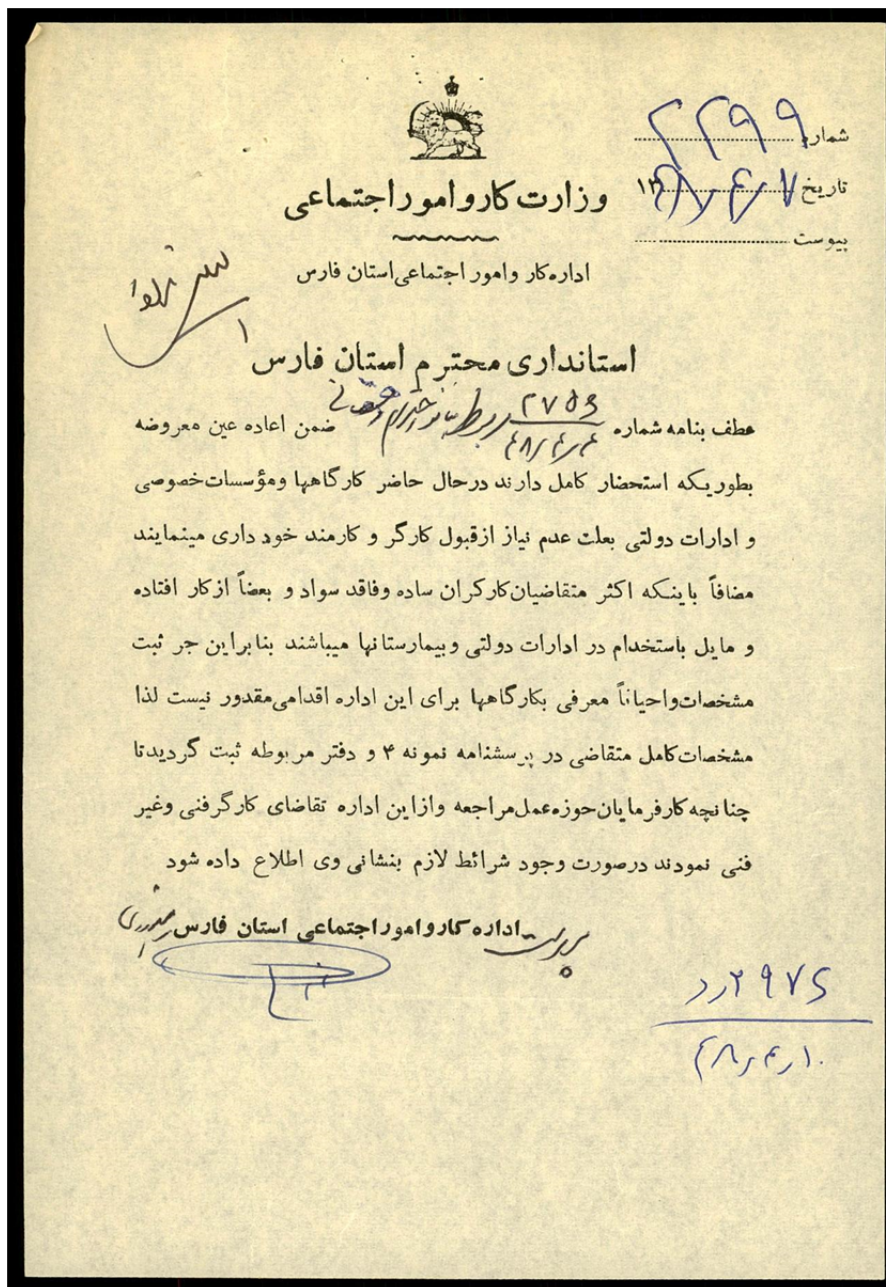 شماره ۲۲۹۹
تاریخ ۴۸/۴/۷ ۱۳
پیوست
وزارت کار و امور اجتماعی
اداره کار و امور اجتماعی استان فارس
استانداری محترم استان فارس
عطف بنامه شماره ۲۷۵۶ ۴۸/۴/۴ مربوط به بانو احترام ضمن اعاده عین معروضه
بطوریکه استحضار کامل دارند درحال حاضر کارگاهها ومؤسسات خصوصی
و ادارات دولتی بعلت عدم نیاز ازقبول کارگر و کارمند خود داری مینمایند
مضافاً باینکه اکثر متقاضیان کارکران ساده وفاقد سواد و بعضاً ازکار افتاده
و مایل باستخدام در ادارات دولتی وبیمارستانها میباشند بنابراین جر ثبت
مشخصات واحیاناً معرفی بکارگاهها برای این اداره اقدامی مقدور نیست لذا
مشخصات کامل متقاضی در پرسشنامه نمونه ۴ و دفتر مربوطه ثبت گردید تا
چنانچه کارفرمایان حوزه عمل مراجعه وازاین اداره تقاضای کارگر فنی وغیر
فنی نمودند درصورت وجود شرائط لازم بنشانی وی اطلاع داده شود
سرپرست اداره کار و امور اجتماعی استان فارس
۲۹۷۶ رد
۴۸/۴/۱۰